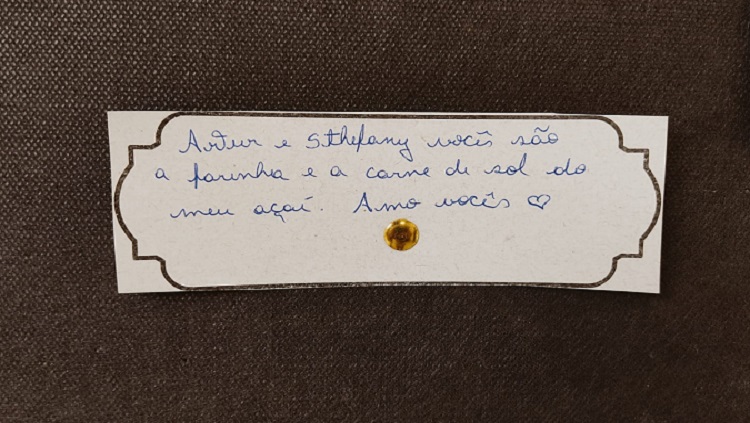 Artur e Sthefany vocês são
a farinha e a carne de sol do
meu açaí. Amo vocês ♡